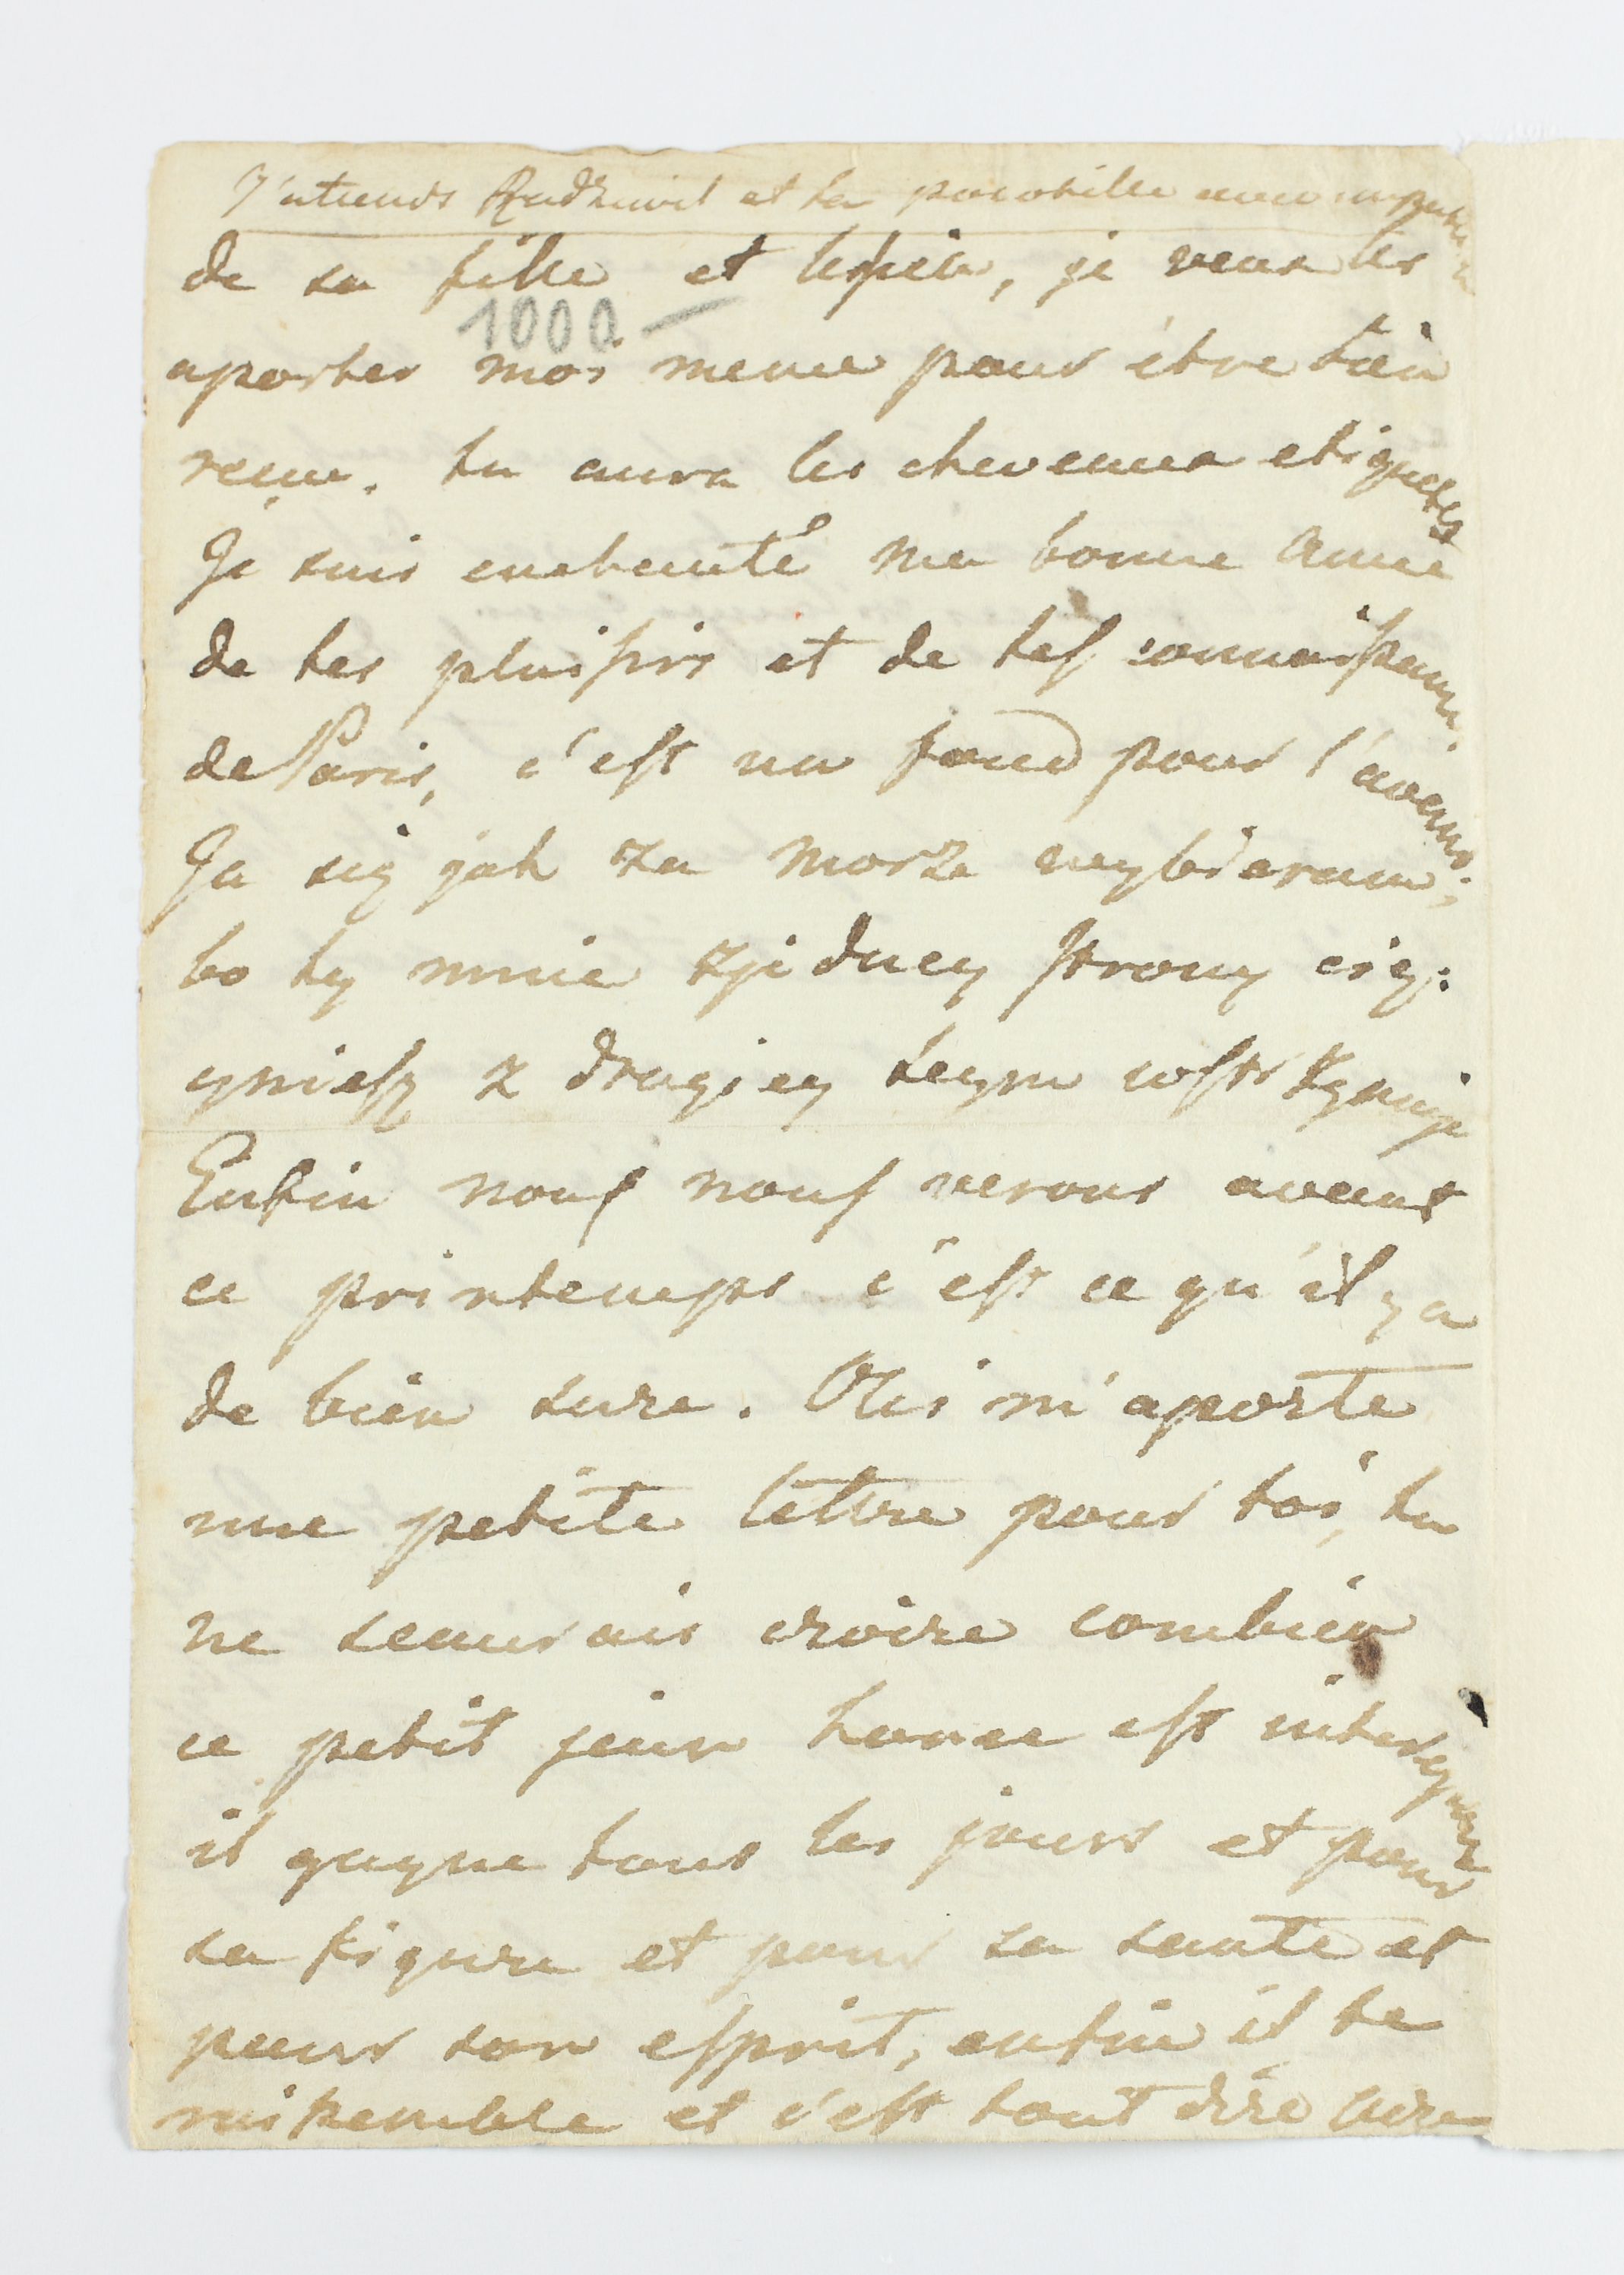 J'attends Radzivil et ta pacotille avec impatience
de sa fille et , je veux les
1000.—
aporter moi meme pour être bien
reçue. tu aura les cheveaux etiquetés
Je suis enchenté ma bonne Amie
de tes plaisirs et de tes connaissanc.
de Paris, c'est un fond pour l'avenir;
Ja się jak za morze wybieram,
bo ty mnie z jedney strony cię:
gniesz z drugiey Leym wstrzymuje
Enfin nous nous verons avent
ce printemps c'est ce qu'il y a
de bien sure. m'aporte
une petite lettre pour toi, tu
ne saurais croire combien
ce petit jeun home est
il gagne tous les jours et pour
sa figure et pour sa sante et
pour son esprit, enfin il te
rissemble et c'est tout dire